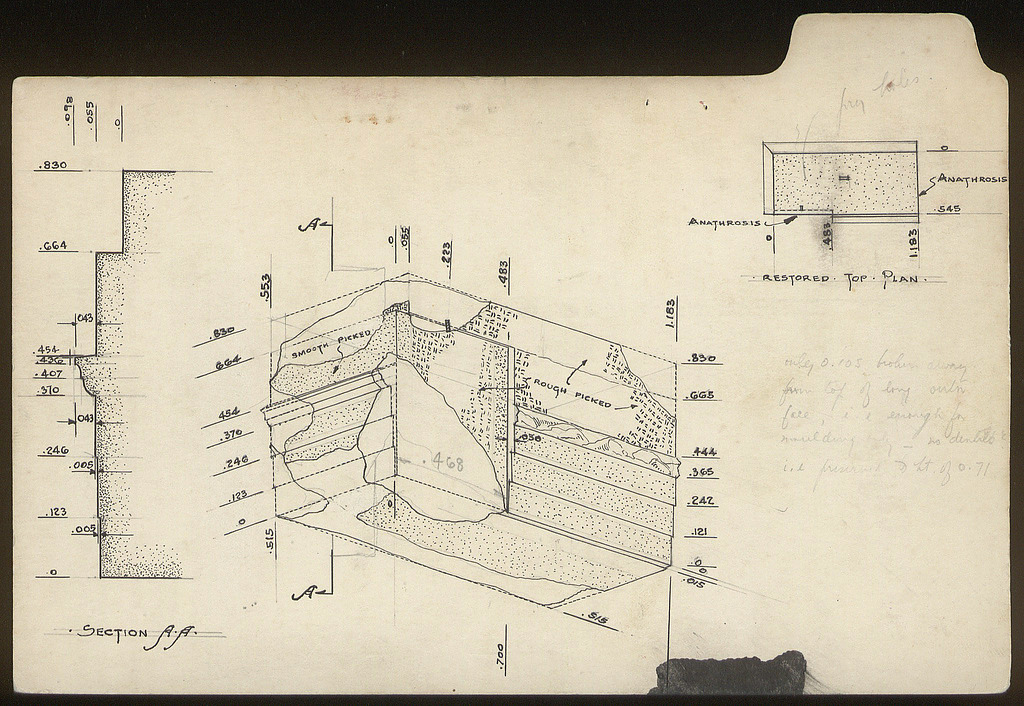 pry holes.
.098 .055 .0
.830
.664
.043
.454
.436
.407
.370
.043
.246
.005
.123
.005
.0
· SECTION A·A ·
A
.553
0
.055
.223
.483
1.183
.830
.664
.454
.370
.246
.123
0
.515
A
SMOOTH PICKED
ROUGH PICKED
.030
.468
0
.830
.665
.444
.365
.242
.121
0
0
.015
.515
.700
0
ANATHROSIS
.545
ANATHROSIS
0
.483
1.183
· RESTORED · TOP · PLAN ·
only 0.105 broken away
from top of long outer
face, i.e. enough for
moulding only, no dentils
i.e. preserved to ht. of 0.71